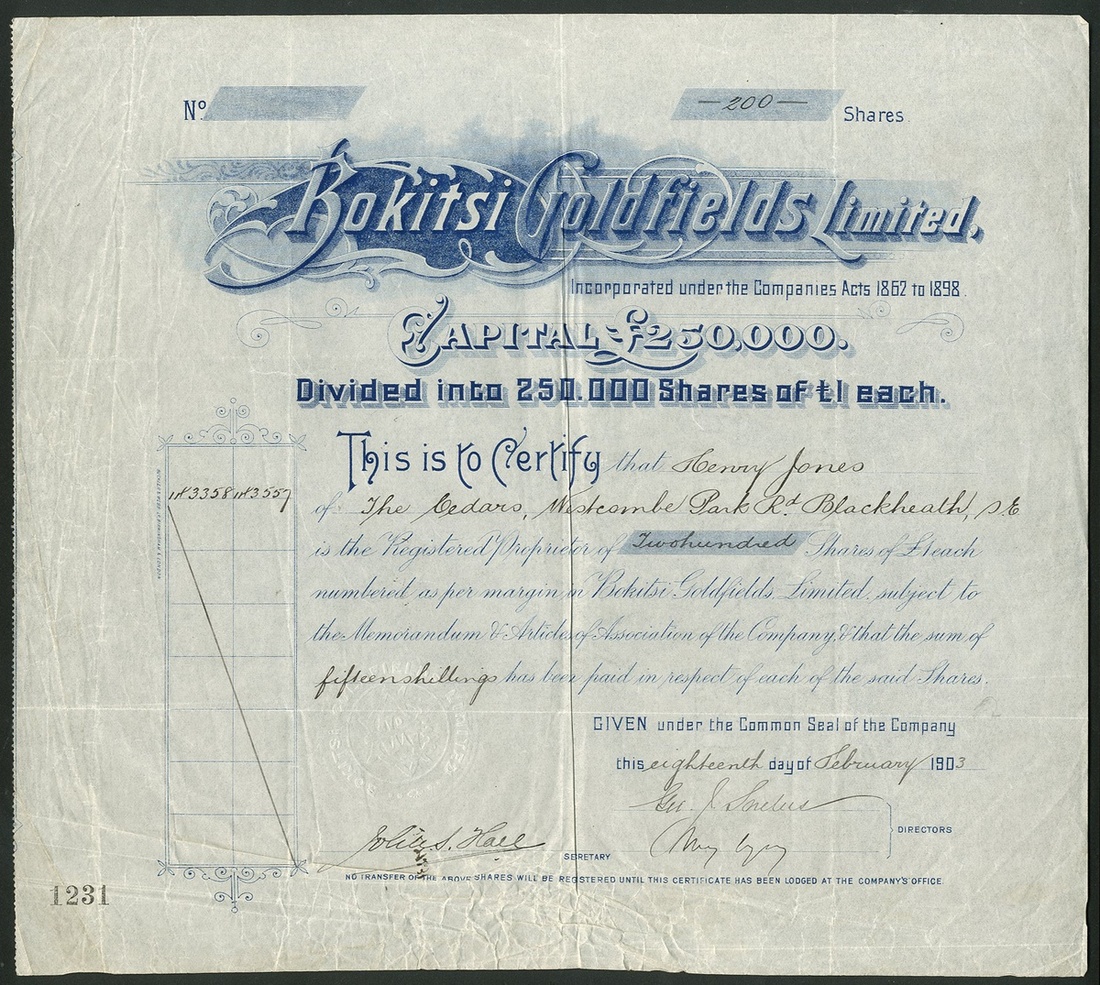 No.
—200— Shares.
Bokitsi Goldfields Limited.
Incorporated under the Companies Acts 1862 to 1898.
Capital £250,000.
Divided into 250.000 Shares of £1 each.
This is to Certify that Henry Jones
of The Cedars, Westcombe Park Rd. Blackheath, S.E
is the Registered Proprietor of Twohundred Shares of £1 each
numbered as per margin in Bokitsi Goldfields, Limited, subject to
the Memorandum & Articles of Association of the Company, & that the sum of
fifteen shillings has been paid in respect of each of the said Shares.
143358 143557
GIVEN under the Common Seal of the Company
this eighteenth day of February 1903
DIRECTORS
Hall
SECRETARY
NO TRANSFER OF THE ABOVE SHARES WILL BE REGISTERED UNTIL THIS CERTIFICATE HAS BEEN LODGED AT THE COMPANY'S OFFICE.
1231